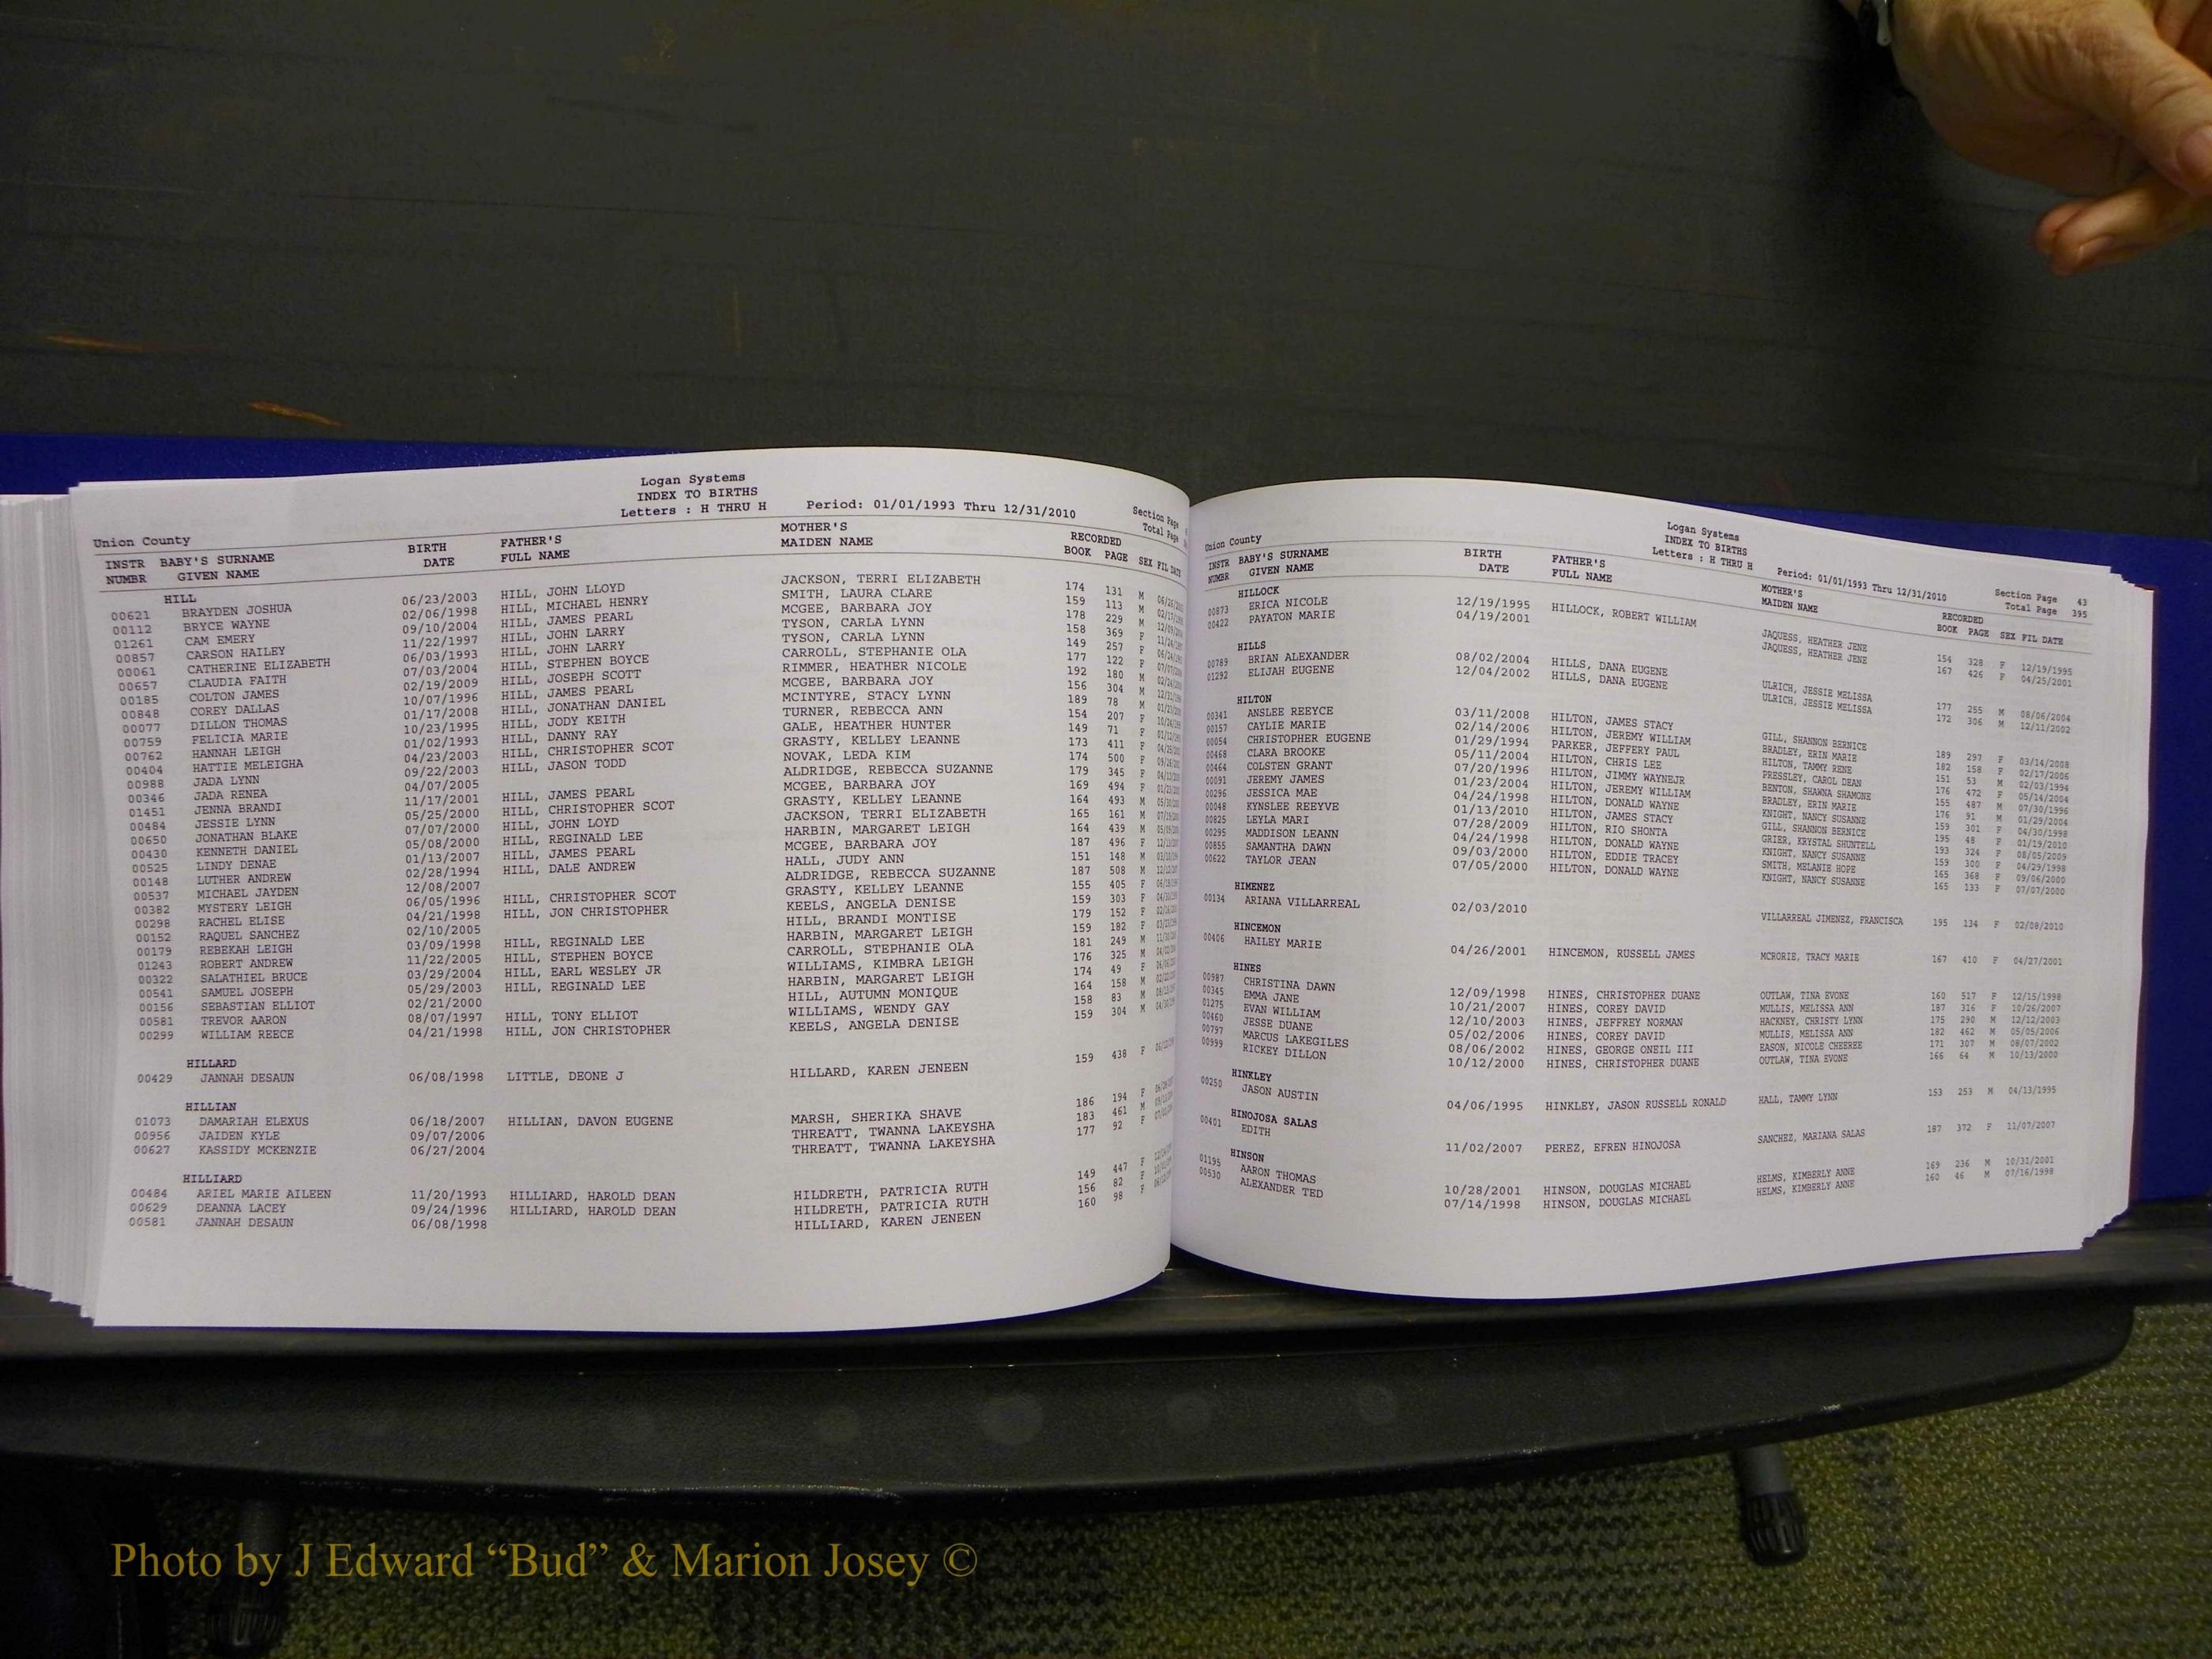 Logan Systems
INDEX TO BIRTHS
Letters : H THRU H Period: 01/01/1993 Thru 12/31/2010
Section Page
Total Page
Union County
INSTR BABY'S SURNAME BIRTH FATHER'S MOTHER'S RECORDED
NUMBR GIVEN NAME DATE FULL NAME MAIDEN NAME BOOK PAGE SEX FIL DATE
HILL
00621 BRAYDEN JOSHUA 06/23/2003 HILL, JOHN LLOYD JACKSON, TERRI ELIZABETH 174 131 M
00112 BRYCE WAYNE 02/06/1998 HILL, MICHAEL HENRY SMITH, LAURA CLARE 159 113 M
01261 CAM EMERY 09/10/2004 HILL, JAMES PEARL MCGEE, BARBARA JOY 178 229 M
00857 CARSON HAILEY 11/22/1997 HILL, JOHN LARRY TYSON, CARLA LYNN 158 369 F
00061 CATHERINE ELIZABETH 06/03/1993 HILL, JOHN LARRY TYSON, CARLA LYNN 149 257 F
00657 CLAUDIA FAITH 07/03/2004 HILL, STEPHEN BOYCE CARROLL, STEPHANIE OLA 177 122 F
00185 COLTON JAMES 02/19/2009 HILL, JOSEPH SCOTT RIMMER, HEATHER NICOLE 192 180 M
00848 COREY DALLAS 10/07/1996 HILL, JAMES PEARL MCGEE, BARBARA JOY 156 304 M
00077 DILLON THOMAS 01/17/2008 HILL, JONATHAN DANIEL MCINTYRE, STACY LYNN 189 78 M
00759 FELICIA MARIE 10/23/1995 HILL, JODY KEITH TURNER, REBECCA ANN 154 207 F
00762 HANNAH LEIGH 01/02/1993 HILL, DANNY RAY GALE, HEATHER HUNTER 149 71 F
00404 HATTIE MELEIGHA 04/23/2003 HILL, CHRISTOPHER SCOT GRASTY, KELLEY LEANNE 173 411 F
00988 JADA LYNN 09/22/2003 HILL, JASON TODD NOVAK, LEDA KIM 174 500 F
00346 JADA RENEA 04/07/2005 ALDRIDGE, REBECCA SUZANNE 179 345 F
01451 JENNA BRANDI 11/17/2001 HILL, JAMES PEARL MCGEE, BARBARA JOY 169 494 F
00484 JESSIE LYNN 05/25/2000 HILL, CHRISTOPHER SCOT GRASTY, KELLEY LEANNE 164 493 M
00650 JONATHAN BLAKE 07/07/2000 HILL, JOHN LOYD JACKSON, TERRI ELIZABETH 165 161 M
00430 KENNETH DANIEL 05/08/2000 HILL, REGINALD LEE HARBIN, MARGARET LEIGH 164 439 M
00525 LINDY DENAE 01/13/2007 HILL, JAMES PEARL MCGEE, BARBARA JOY 187 496 F
00148 LUTHER ANDREW 02/28/1994 HILL, DALE ANDREW HALL, JUDY ANN 151 148 M
00537 MICHAEL JAYDEN 12/08/2007 ALDRIDGE, REBECCA SUZANNE 187 508 M
00382 MYSTERY LEIGH 06/05/1996 HILL, CHRISTOPHER SCOT GRASTY, KELLEY LEANNE 155 405 F
00298 RACHEL ELISE 04/21/1998 HILL, JON CHRISTOPHER KEELS, ANGELA DENISE 159 303 F
00152 RAQUEL SANCHEZ 02/10/2005 HILL, BRANDI MONTISE 179 152 F
00179 REBEKAH LEIGH 03/09/1998 HILL, REGINALD LEE HARBIN, MARGARET LEIGH 159 182 F
01243 ROBERT ANDREW 11/22/2005 HILL, STEPHEN BOYCE CARROLL, STEPHANIE OLA 181 249 M
00322 SALATHIEL BRUCE 03/29/2004 HILL, EARL WESLEY JR WILLIAMS, KIMBRA LEIGH 176 325 M
00541 SAMUEL JOSEPH 05/29/2003 HILL, REGINALD LEE HARBIN, MARGARET LEIGH 174 49
00156 SEBASTIAN ELLIOT 02/21/2000 HILL, AUTUMN MONIQUE 164 158 M
00581 TREVOR AARON 08/07/1997 HILL, TONY ELLIOT WILLIAMS, WENDY GAY 158 83 M
00299 WILLIAM REECE 04/21/1998 HILL, JON CHRISTOPHER KEELS, ANGELA DENISE 159 304 M
HILLARD
00429 JANNAH DESAUN 06/08/1998 LITTLE, DEONE J HILLARD, KAREN JENEEN 159 438 F
HILLIAN
01073 DAMARIAH ELEXUS 06/18/2007 HILLIAN, DAVON EUGENE MARSH, SHERIKA SHAVE 186 194 F
00956 JAIDEN KYLE 09/07/2006 THREATT, TWANNA LAKEYSHA 183 461 M
00627 KASSIDY MCKENZIE 06/27/2004 THREATT, TWANNA LAKEYSHA 177 92 F
HILLIARD
00484 ARIEL MARIE AILEEN 11/20/1993 HILLIARD, HAROLD DEAN HILDRETH, PATRICIA RUTH 149 447 F
00629 DEANNA LACEY 09/24/1996 HILLIARD, HAROLD DEAN HILDRETH, PATRICIA RUTH 156 82 F
00581 JANNAH DESAUN 06/08/1998 HILLIARD, KAREN JENEEN 160 98 F
Logan Systems
INDEX TO BIRTHS
Letters : H THRU H Period: 01/01/1993 Thru 12/31/2010
Section Page 43
Total Page 395
Union County
INSTR BABY'S SURNAME BIRTH FATHER'S MOTHER'S RECORDED
NUMBR GIVEN NAME DATE FULL NAME MAIDEN NAME BOOK PAGE SEX FIL DATE
HILLOCK
00873 ERICA NICOLE 12/19/1995 HILLOCK, ROBERT WILLIAM JAQUESS, HEATHER JENE 154 328 F 12/19/1995
00422 PAYATON MARIE 04/19/2001 JAQUESS, HEATHER JENE 167 426 F 04/25/2001
HILLS
00789 BRIAN ALEXANDER 08/02/2004 HILLS, DANA EUGENE ULRICH, JESSIE MELISSA 177 255 M 08/06/2004
01292 ELIJAH EUGENE 12/04/2002 HILLS, DANA EUGENE ULRICH, JESSIE MELISSA 172 306 M 12/11/2002
HILTON
00341 ANSLEE REEYCE 03/11/2008 HILTON, JAMES STACY GILL, SHANNON BERNICE 189 297 F 03/14/2008
00157 CAYLIE MARIE 02/14/2006 HILTON, JEREMY WILLIAM BRADLEY, ERIN MARIE 182 158 F 02/17/2006
00054 CHRISTOPHER EUGENE 01/29/1994 PARKER, JEFFERY PAUL HILTON, TAMMY RENE 151 53 M 02/03/1994
00468 CLARA BROOKE 05/11/2004 HILTON, CHRIS LEE PRESSLEY, CAROL DEAN 176 472 F 05/14/2004
00464 COLSTEN GRANT 07/20/1996 HILTON, JIMMY WAYNEJR BENTON, SHAWNA SHAMONE 155 487 M 07/30/1996
00091 JEREMY JAMES 01/23/2004 HILTON, JEREMY WILLIAM BRADLEY, ERIN MARIE 176 91 M 01/29/2004
00296 JESSICA MAE 04/24/1998 HILTON, DONALD WAYNE KNIGHT, NANCY SUSANNE 159 301 F 04/30/1998
00048 KYNSLEE REEYVE 01/13/2010 HILTON, JAMES STACY GILL, SHANNON BERNICE 195 48 F 01/19/2010
00825 LEYLA MARI 07/28/2009 HILTON, RIO SHONTA GRIER, KRYSTAL SHUNTELL 193 324 F 08/05/2009
00295 MADDISON LEANN 04/24/1998 HILTON, DONALD WAYNE KNIGHT, NANCY SUSANNE 159 300 F 04/29/1998
00855 SAMANTHA DAWN 09/03/2000 HILTON, EDDIE TRACEY SMITH, MELANIE HOPE 165 368 F 09/06/2000
00622 TAYLOR JEAN 07/05/2000 HILTON, DONALD WAYNE KNIGHT, NANCY SUSANNE 165 133 F 07/07/2000
HIMENEZ
00134 ARIANA VILLARREAL 02/03/2010 VILLARREAL JIMENEZ, FRANCISCA 195 134 F 02/08/2010
HINCEMON
00406 HAILEY MARIE 04/26/2001 HINCEMON, RUSSELL JAMES MCRORIE, TRACY MARIE 167 410 F 04/27/2001
HINES
00987 CHRISTINA DAWN 12/09/1998 HINES, CHRISTOPHER DUANE OUTLAW, TINA EVONE 160 517 F 12/15/1998
00345 EMMA JANE 10/21/2007 HINES, COREY DAVID MULLIS, MELISSA ANN 187 316 F 10/26/2007
01275 EVAN WILLIAM 12/10/2003 HINES, JEFFREY NORMAN HACKNEY, CHRISTY LYNN 175 290 M 12/12/2003
00460 JESSE DUANE 05/02/2006 HINES, COREY DAVID MULLIS, MELISSA ANN 182 462 M 05/05/2006
00797 MARCUS LAKEGILES 08/06/2002 HINES, GEORGE ONEIL III EASON, NICOLE CHEEREE 171 307 M 08/07/2002
00999 RICKEY DILLON 10/12/2000 HINES, CHRISTOPHER DUANE OUTLAW, TINA EVONE 166 64 M 10/13/2000
HINKLEY
00250 JASON AUSTIN 04/06/1995 HINKLEY, JASON RUSSELL RONALD HALL, TAMMY LYNN 153 253 M 04/13/1995
HINOJOSA SALAS
00401 EDITH 11/02/2007 PEREZ, EFREN HINOJOSA SANCHEZ, MARIANA SALAS 187 372 F 11/07/2007
HINSON
01195 AARON THOMAS 10/28/2001 HINSON, DOUGLAS MICHAEL HELMS, KIMBERLY ANNE 169 236 M 10/31/2001
00530 ALEXANDER TED 07/14/1998 HINSON, DOUGLAS MICHAEL HELMS, KIMBERLY ANNE 160 46 M 07/16/1998
Photo by J Edward “Bud” & Marion Josey ©